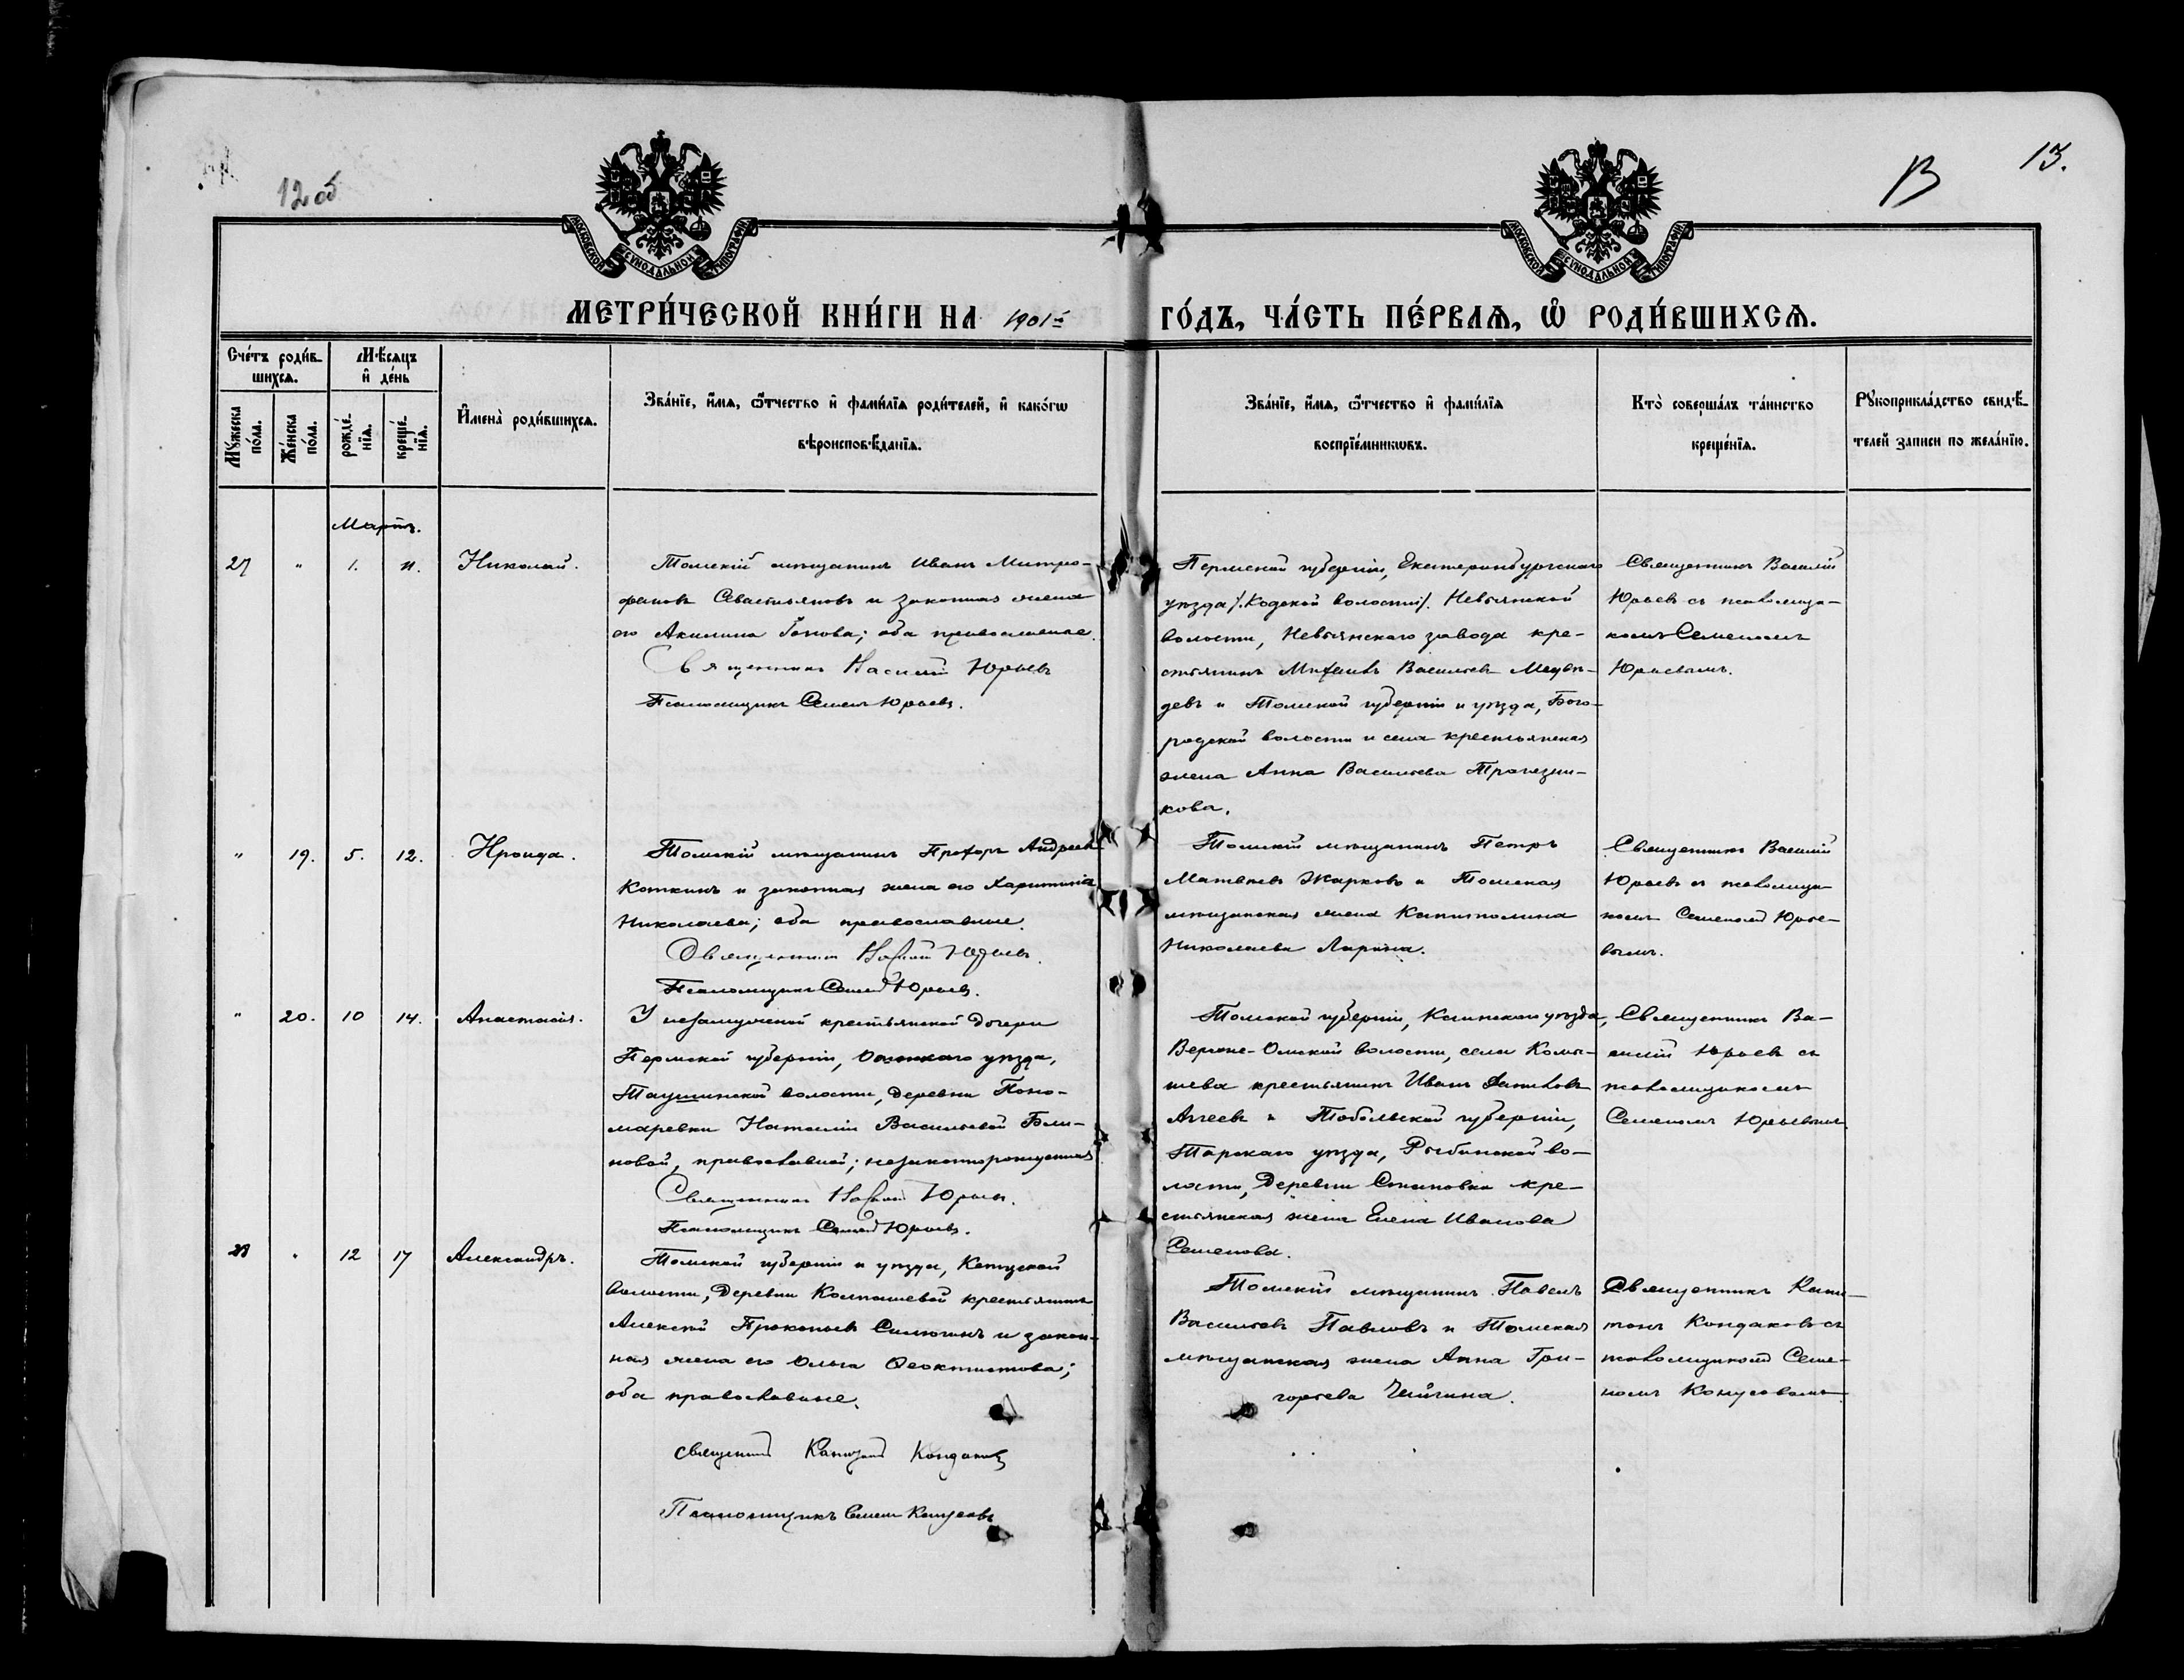 12 об
13.
МОСКОВСКОЙ СѴНОДАЛЬНОЙ ТИПОГРАФІИ
МОСКОВСКОЙ СѴНОДАЛЬНОЙ ТИПОГРАФІИ
МЕТРИ́ЧЕСКОЙ КНИ́ГИ НА 1901й ГО́ДЪ, ЧА́СТЬ ПЕ́РВАѦ, Ѡ҆ РОДИ́ВШИХСѦ.
Сче́тъ роди́в-
шихсѧ.
Мꙋ́жеска по́ла.
Же́нска по́ла.
Мѣ́сѧцъ
и҆ де́нь
рожде́-
нїѧ.
креще́-
нїѧ.
И҆мена̀ роди́вшихсѧ.
Зва́нїе, и҆́мѧ, ѻ҆́тчество и҆ фами́лїѧ роди́телей, и҆ како́гѡ
вѣроисповѣ́данїѧ.
Зва́нїе, и҆́мѧ, ѻ҆́тчество и҆ фами́лїѧ
воспрїе́мникѡвъ.
Кто̀ соверша́лъ та́инство
креще́нїѧ.
Рꙋкоприкла́дство свидѣ́-
телей записи по жела́нїю.
Мартъ.
27 " 1. 11. Николай.
Томскій мѣщанинъ Иванъ Митро-
фановъ Севастьяновъ и законная жена
его Акилина ; оба православные.
Священникъ Василій Юрьевъ
Псаломщикъ Семенъ Юрьевъ.
Пермской губерніи, Екатеринбургскаго
уѣзда /.Кодской волости/. Невьянской
волости, Невьянскаго завода кре-
стьянинъ Васильевъ Медвѣ-
девъ и Томской губерніи и уѣзда, Бого-
родской волости и села крестьянская
жена Анна Васильева Трапезни-
кова.
Священникъ Василій
Юрьевъ съ псаломщи-
комъ Семеномъ
Юрьевымъ.
" 19. 5. 12. Ираида.
Томскій мѣщанинъ Андреевъ
Коткинъ и законная жена его Харитина
Николаева; оба православные.
Священникъ Василій Юрьевъ.
Псаломщикъ Семенъ Юрьевъ.
Томскій мѣщанинъ Петръ
Матвѣевъ Жарковъ и Томская
мѣщанская жена Капитолина
Николаева Ларина.
Священникъ Василій
Юрьевъ съ псаломщи-
комъ Семеномъ Юрье-
вымъ.
" 20. 10 14. Анастасія.
У незамужней крестьянской дочери
Пермской губерніи, Осинскаго уѣзда,
Таушинской волости, деревни Поно-
маревки Наталіи Васильевой Бли-
новой, православной; незаконнорожденная
Священникъ Василій Юрьевъ.
Псаломщикъ Семенъ Юрьевъ.
Томской губерніи, Каинскаго уѣзда,
Верхне-Омской волости, села Комы-
шева крестьянинъ Иванъ
Агеевъ и Тобольской губерніи,
Тарскаго уѣзда, Рыбинской во-
лости, деревни кре-
стьянская жена Елена Иванова
Семенова.
Священникъ Ва-
силій Юрьевъ съ
псаломщикомъ
Семеномъ Юрьевымъ.
28 " 12 17 Александръ.
Томской губерніи и уѣзда, Кетской
волости, деревни Колпашевой крестьянинъ
Алексѣй Прокопьевъ и закон-
ная жена его Ольга Ѳеоктистова;
оба православные.
священникъ Капитонъ Кондаковъ
Псаломщикъ Семенъ
Томскій мѣщанинъ Павелъ
Васильевъ Павловъ и Томская
мѣщанская жена Анна Гри-
горьева .
Священникъ Капи-
тонъ Кондаковъ съ
псаломщикомъ Семе-
номъ